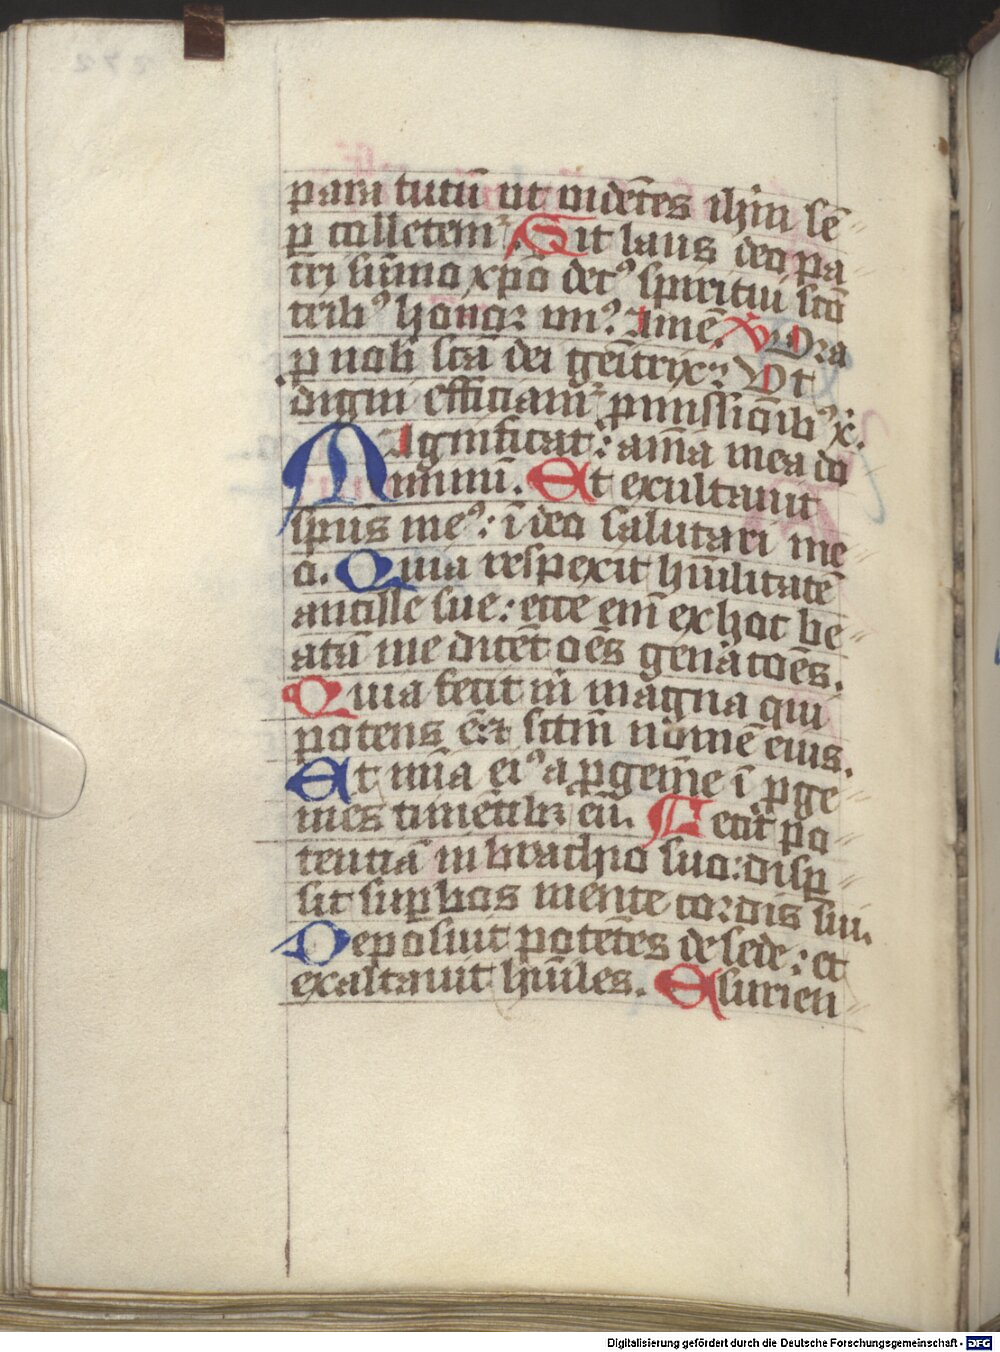 para tutū ut vidētes ihm sē
p colletem᷑. Sit laus deo pa
tri sūmo xpō dec⁹ spiritui scō
trib⁹ honor un⁹. Amē. V Ora
p nob scā dei geīitrix: Vt
digni efficiam᷑ pmissiōib⁹ x̄.
Magnificat: aīma mea do
minum̄. Et exultauit
spūs me⁹: ī deo salutari me
o. Quia respexit hūilitatē
ancille sue: ecce em̄ ex hoc be
atā me dicēt oēs genātōēs.
Quia fecit m̄ magna qui
potens ē: ⁊ sctm̄ nomē eius.
Et mīa ei⁹ a pgenīe ī pge
nies timētibꝫ eū. Fecit po
tentiā in brachio suo: disp
sit supbos mente cordis sui.
Deposuit potētes de sede: et
exaltauit hūiles. Esurien
Digitalisierung gefördert durch die Deutsche Forschungsgemeinschaft - DFG